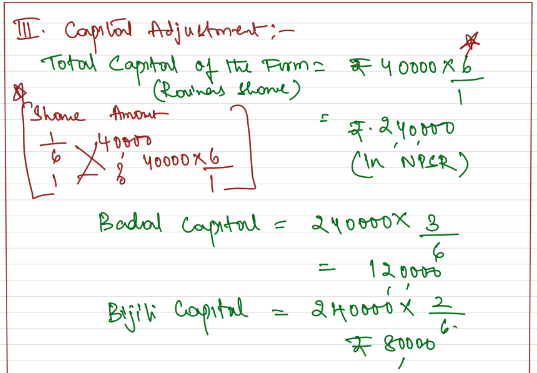 III. Capital Adjustment :-
Total Capital of the Firm = ₹ 40000 × 6/1
(Ravina's share)
= ₹. 240000
(In NPSR)
Share Amount
1/6 40000
1 ? 40000×6/1
Badal Capital = 240000 × 3/6
= 120000
Bijili Capital = 240000 × 2/6.
₹ 80000